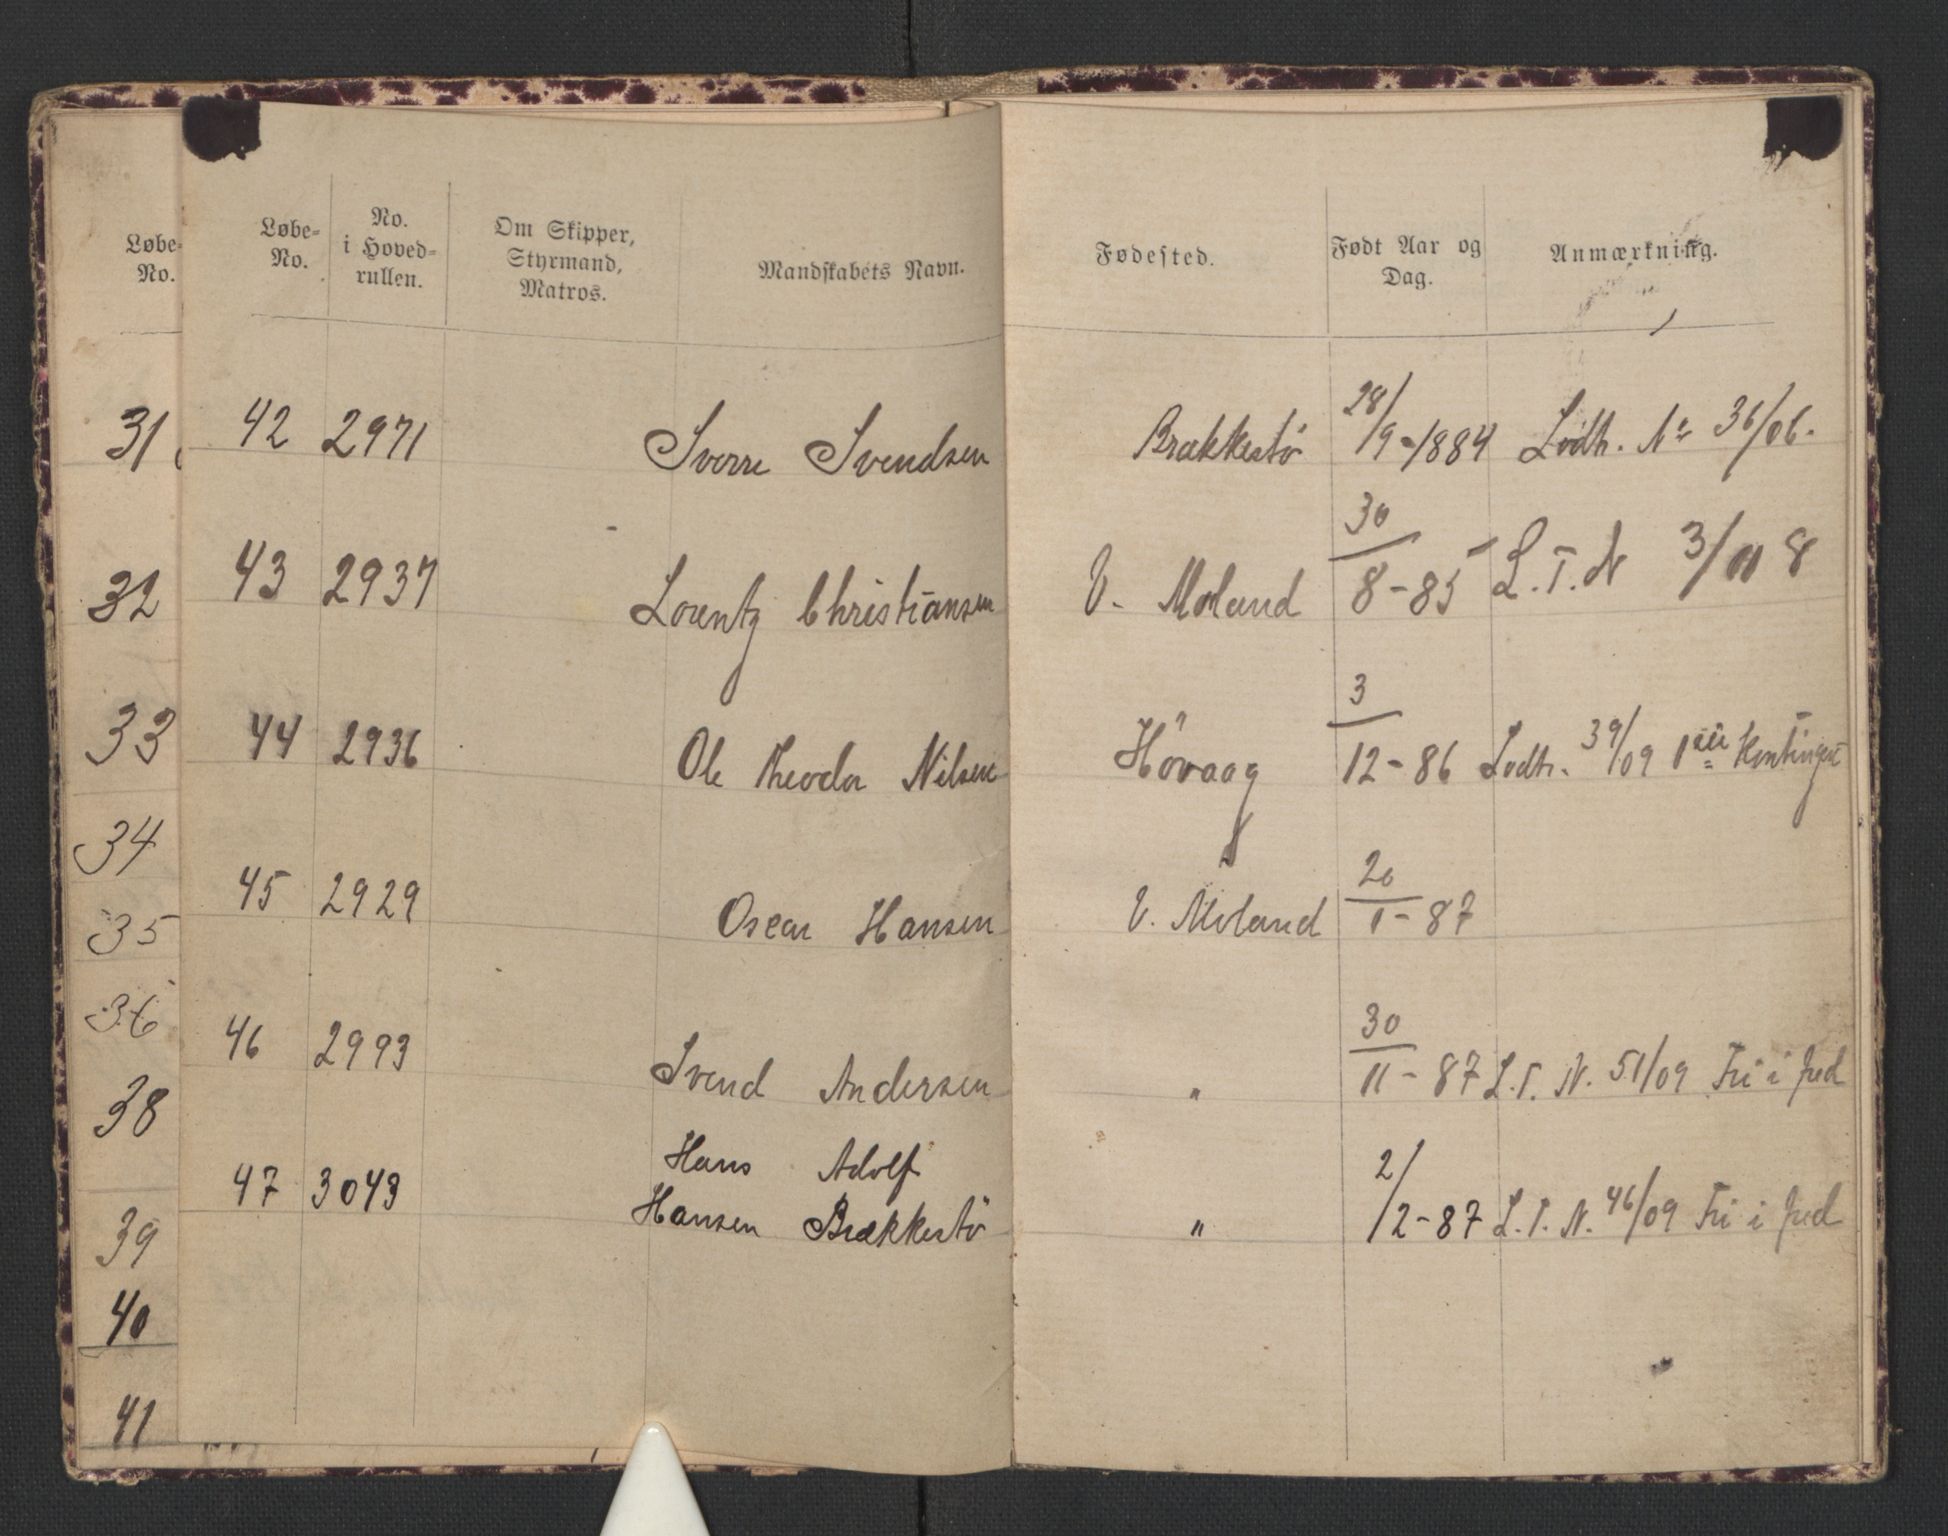 Løbe-
No.
31
32
33
34
35
36
38
39
40
41
Løbe-
No.
No.
i Hoved-
rullen.
Om Skipper,
Styrmand,
Matros.
Mandskabets Navn.
Fødested.
Født Aar og
Dag.
Anmærkning.
42 2971 Sverre Svendsen Brækkestö 28/9-1884 Lodtr. Nr 36/06.
43 2937 Lorentz Christiansen V. Moland 30/8-85 L.T.N 3/08
44 2936 Ole Theodor Nilsen Hövaag 3/12-86 Lodtr. 39/09 1ste Kontingent
45 2929 Oscar Hansen V. Moland 20/1-87
46 2993 Svend Andersen " 30/11-87 L.T.N. 51/09 Fri i fred
47 3043 Hans Adolf
Hansen Brækkestö " 2/2-87 L.T.N. 46/09 Fri i fred